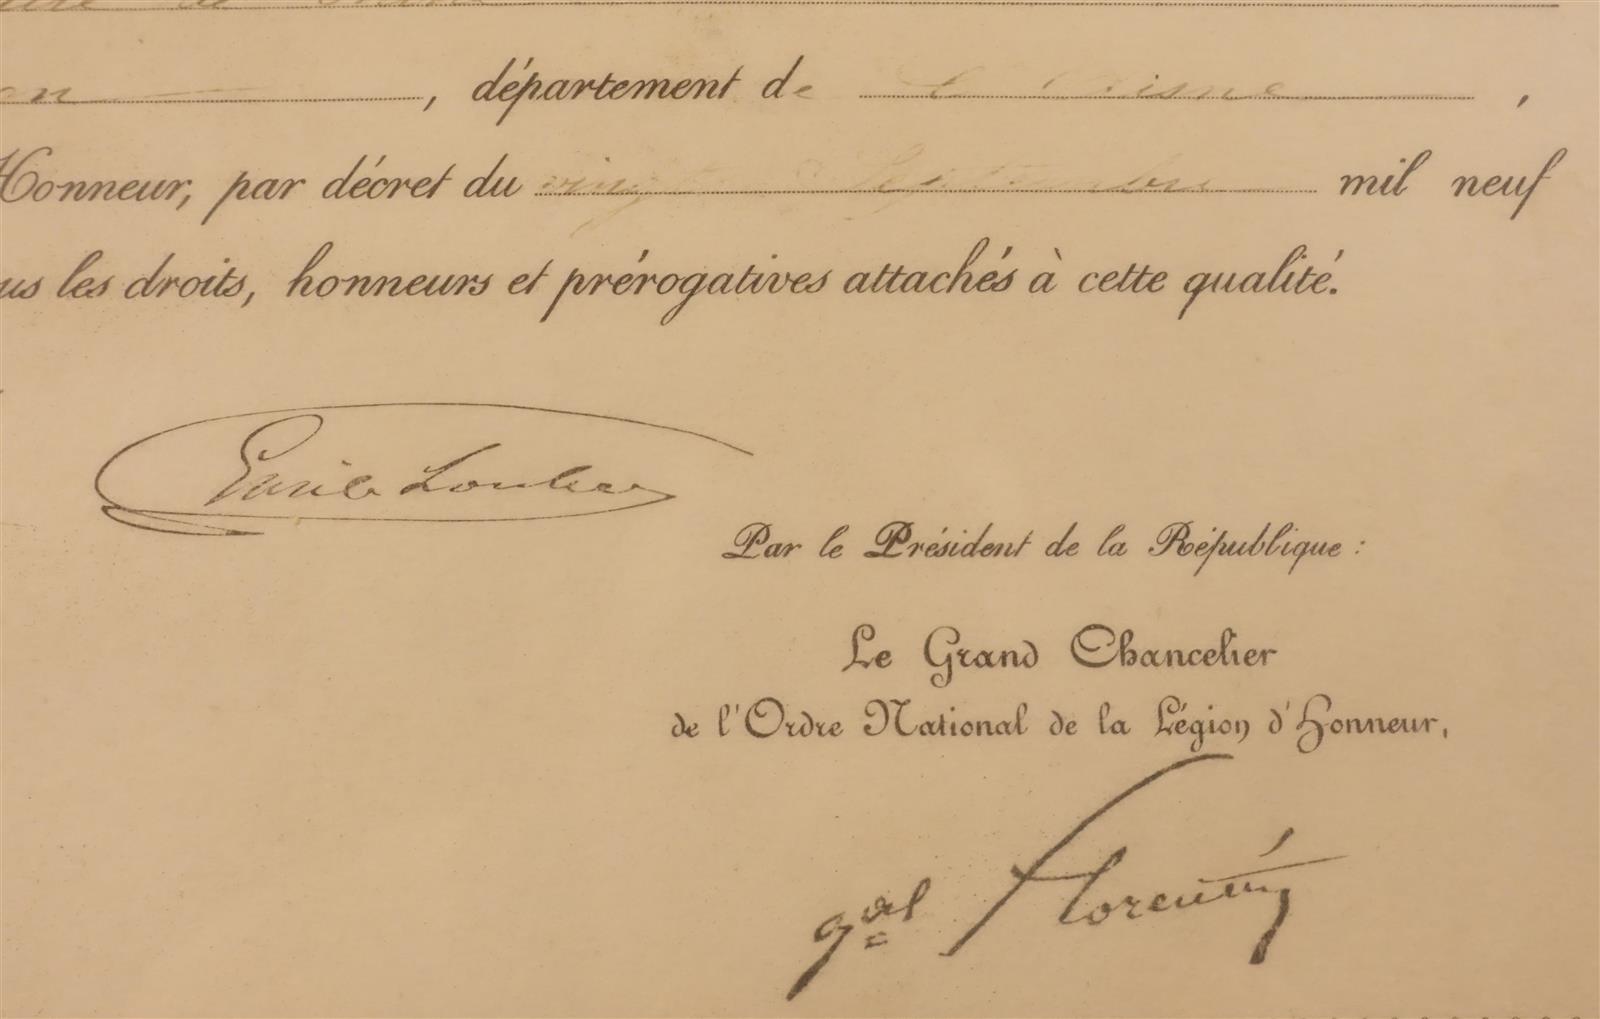 de
on , département de l'Aisne ,
Honneur, par décret du vingt Septembre mil neuf
us les droits, honneurs et prérogatives attachés à cette qualité.
Emile Loubet
Par le Président de la République :
Le Grand Chancelier
de l'Ordre National de la Légion d'Honneur,
gal Florentin